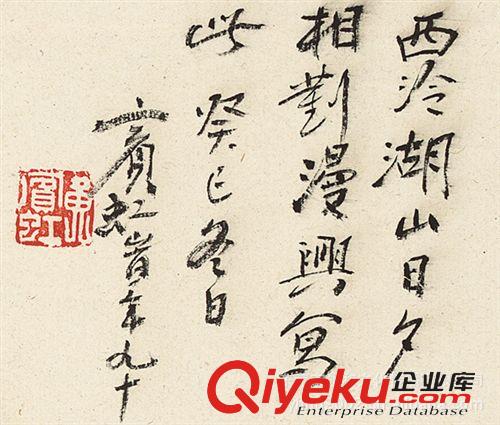 西泠湖山日夕
相對漫興寫
此 癸巳冬日
賓虹 時年九十
黃賓虹
Qiyeku.com 企业库
Enterprise Database